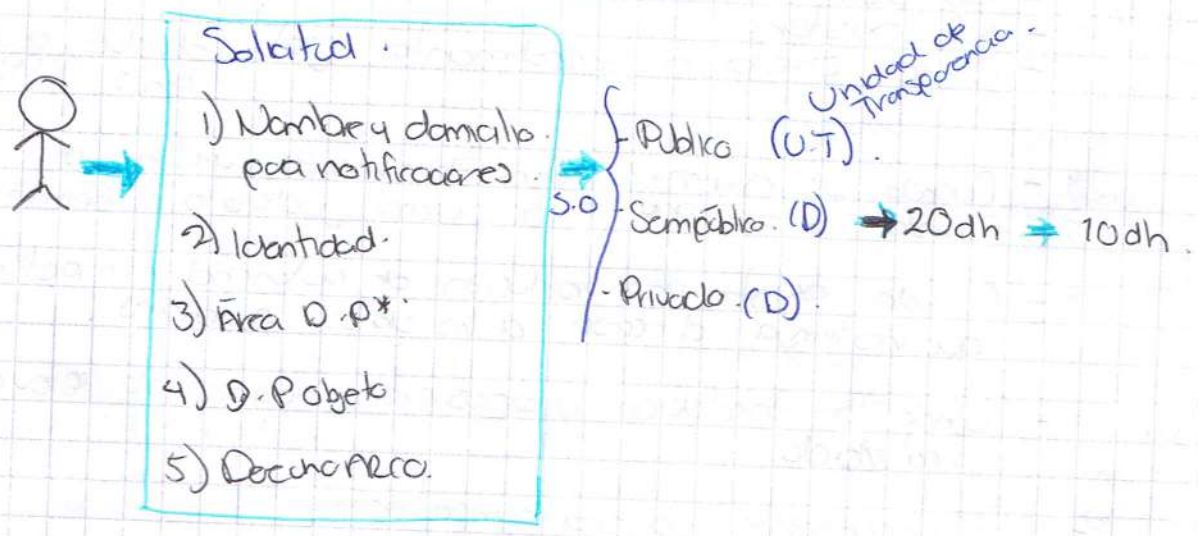 Solicitud.
1) Nombre y domicilio
para notificaciones.
2) Identidad.
3) Área D.P*.
4) D.P objeto
5) Derecho ARCO.
S.O
- Público (U.T).
Unidad de
Transparencia.
- Semipúblico. (D) → 20dh → 10dh.
- Privado. (D).